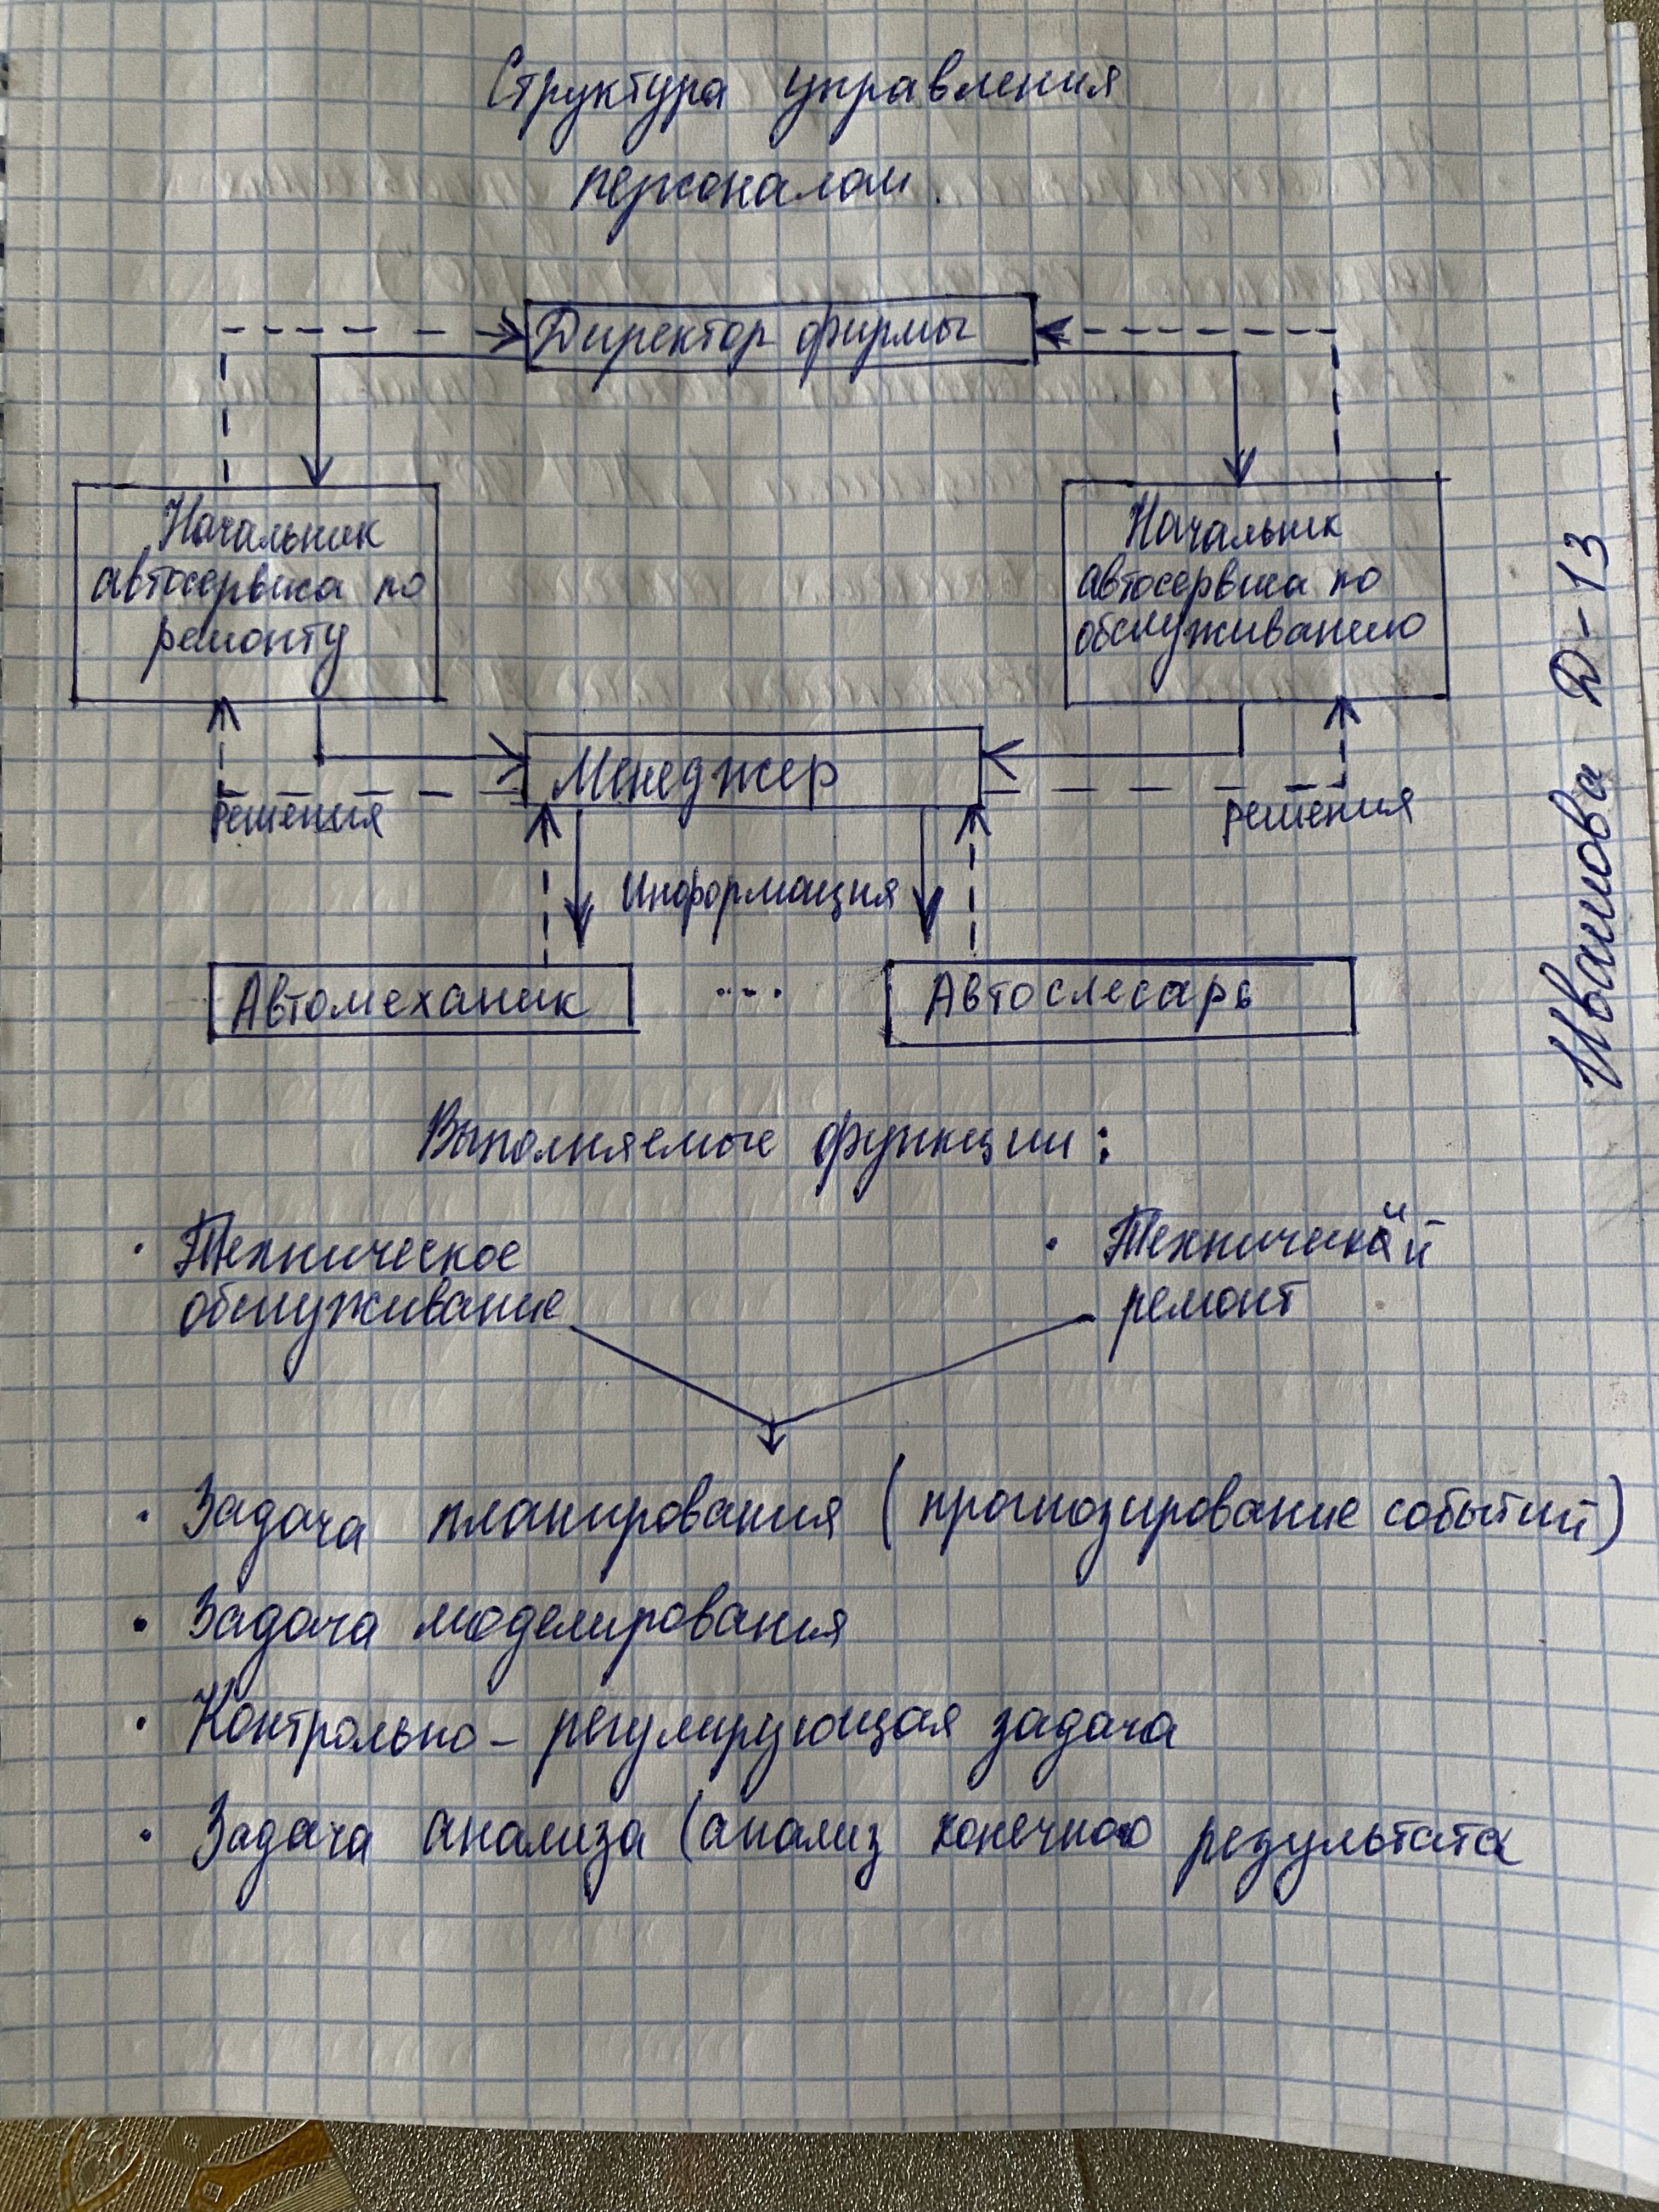 Структура управления
персоналом.
Директор фирмы
Начальник
автосервиса по
ремонту
Начальник
автосервиса по
обслуживанию
Менеджер
решения
решения
Информация
Автомеханик
...
Автослесарь
Иванова Д-13
Выполняемые функции:
• Техническое
обслуживание
• Технический
ремонт
• Задача планирования (прогнозирование событий)
• Задача моделирования
• Контрольно - регулирующая задача
• Задача анализа (анализ конечного результата